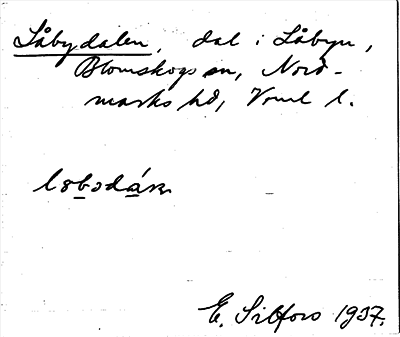 Låbydalen, dal i Låbyn,
Blomskogs sn, Nord-
marks hd, Vrml l.
E. Silfors 1937.